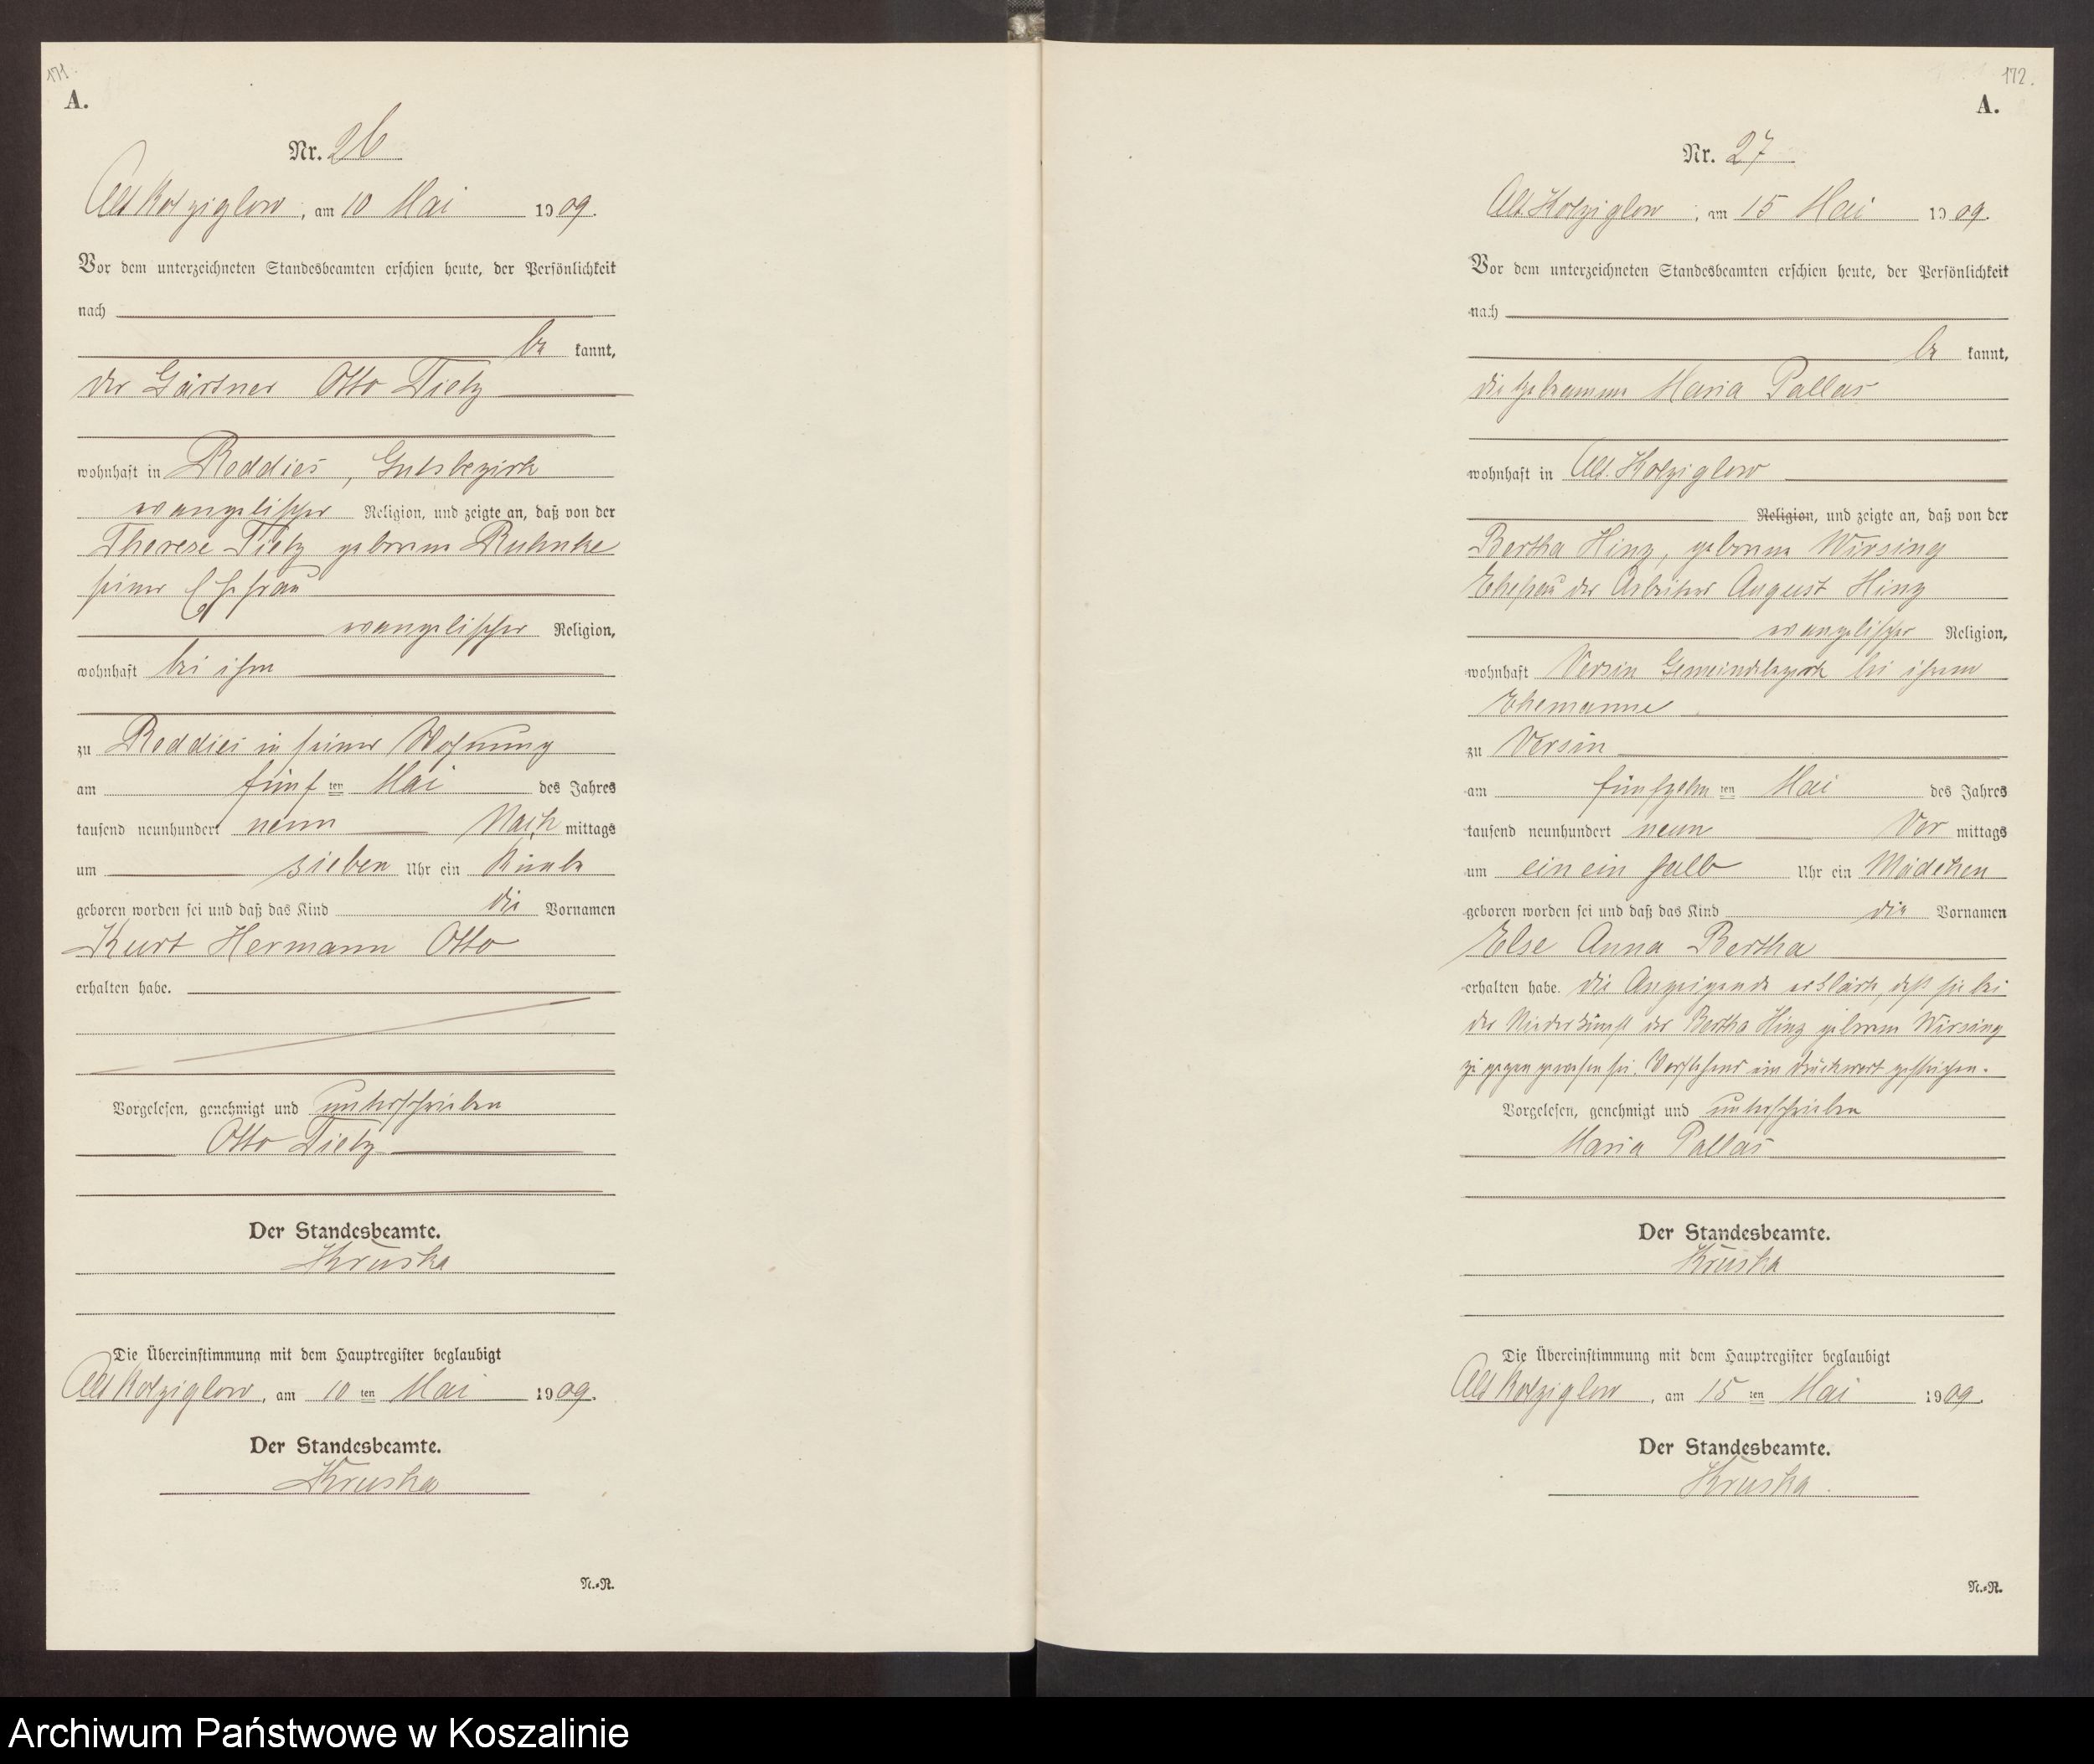 171.
A.
Nr. 26
Alt Kolziglow, am 10 Mai 1909.
Vor dem unterzeichneten Standesbeamten erschien heute, der Persönlichkeit
nach
be kannt,
der Gärtner Otto Tietz
wohnhaft in Reddies, Gutsbezirk
evangelischer Religion, und zeigte an, daß von der
Therese Tietz geborene Ruhnke
seiner Ehefrau
evangelischer Religion,
wohnhaft bei ihm
zu Reddies in seiner Wohnung
am fünf ten Mai des Jahres
tausend neunhundert neun Nach mittags
um sieben Uhr ein Knabe
geboren worden sei und daß das Kind die Vornamen
Kurt Hermann Otto
erhalten habe.
Vorgelesen, genehmigt und unterschrieben
Otto Tietz
Der Standesbeamte.
Kruska
Die Übereinstimmung mit dem Hauptregister beglaubigt
Alt Kolziglow, am 10 ten Mai 1909.
Der Standesbeamte.
Kruska
N.-R.
172.
A.
Nr. 27
Alt. Kolziglow, am 15 Mai 1909.
Vor dem unterzeichneten Standesbeamten erschien heute, der Persönlichkeit
nach
be kannt,
die Hebamme Maria Pallas
wohnhaft in Alt. Kolziglow
Religion, und zeigte an, daß von der
Bertha Hinz, geborene Wirsing
Ehefrau des Arbeiters August Hinz
evangelischer Religion,
wohnhaft Versin Gemeindebezirk bei ihrem
Ehemanne
zu Versin
am fünfzehn ten Mai des Jahres
tausend neunhundert neun Vor mittags
um ein ein halb Uhr ein Mädchen
geboren worden sei und daß das Kind die Vornamen
Else Anna Bertha
erhalten habe. Die Anzeigende erklärte, daß sie bei
der Niederkunft der Bertha Hinz geborene Wirsing
zugegen gewesen sei. Vorstehend ein Druckwort gestrichen.
Vorgelesen, genehmigt und unterschrieben
Maria Pallas
Der Standesbeamte.
Kruska
Die Übereinstimmung mit dem Hauptregister beglaubigt
Alt Kolziglow, am 15 ten Mai 1909.
Der Standesbeamte.
Kruska.
N.-R.
Archiwum Państwowe w Koszalinie